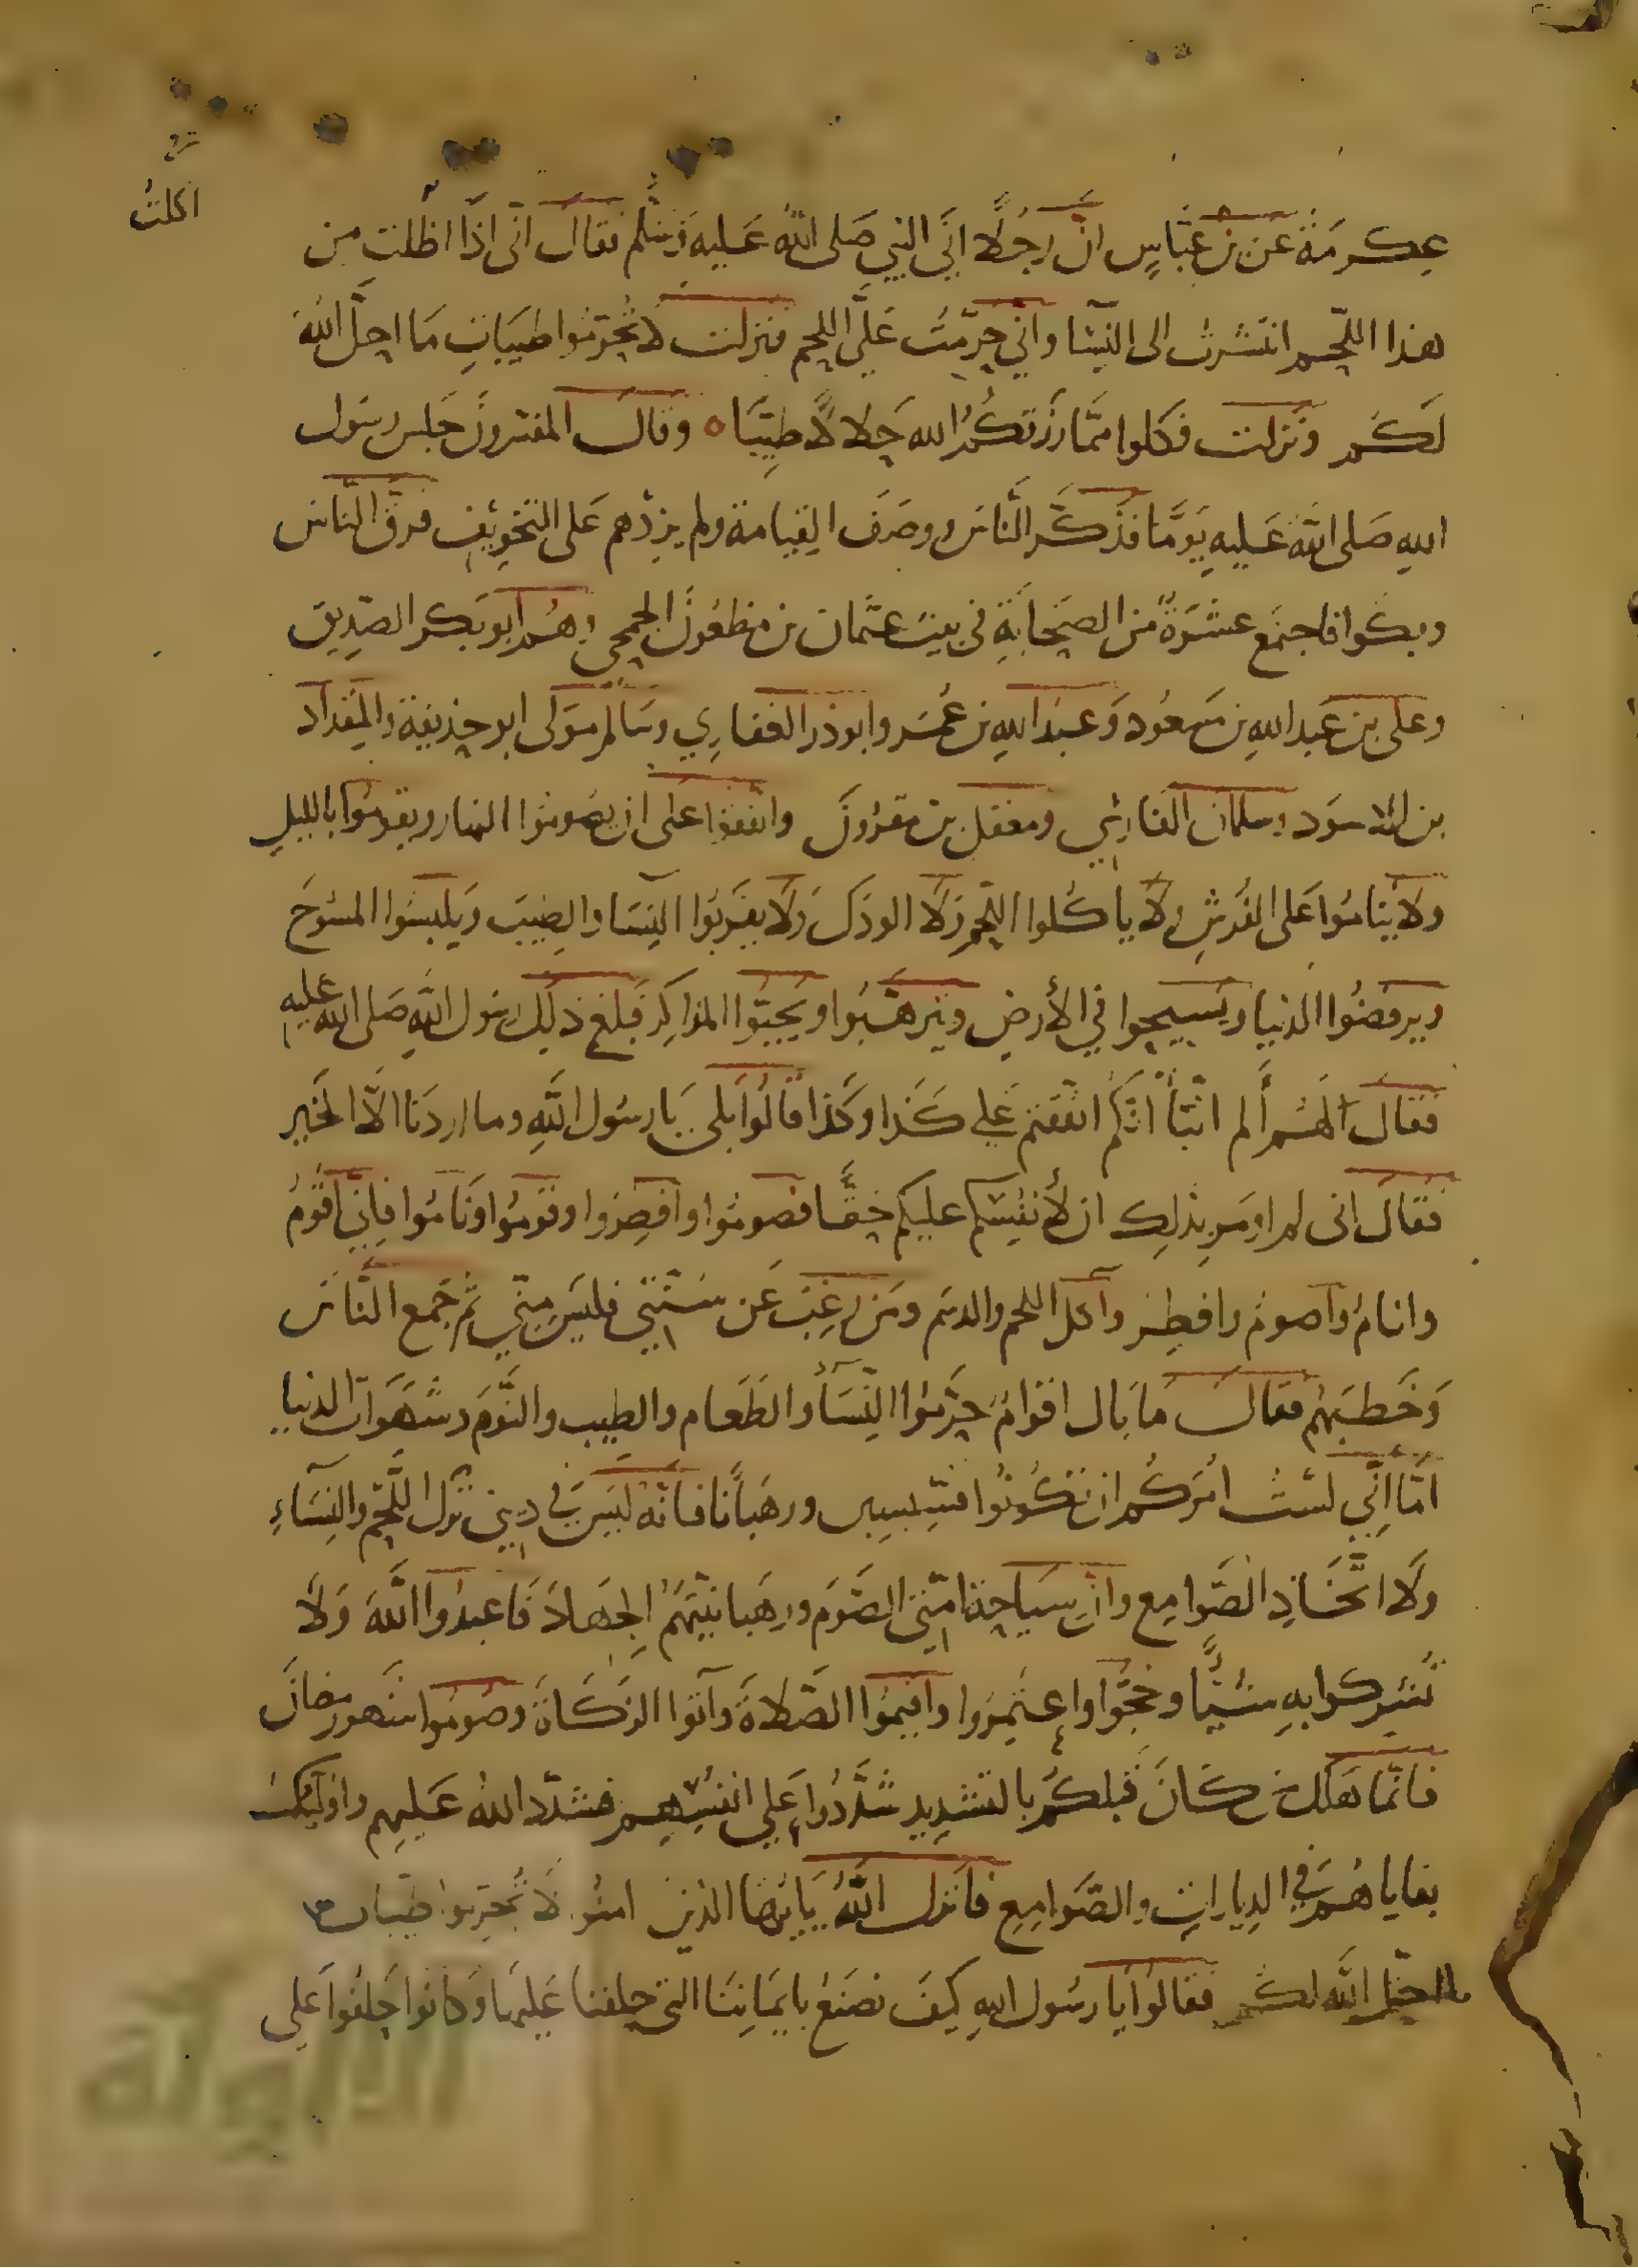 اكلت
عكرمة عن بن عباس ان رجلا اتى النبي صلى الله عليه وسلم فقال انى اذا اظلت من
هذا اللحم انتشرت الى النسا واني حرمت علي اللحم فنزلت لا تحرموا طيبات ما احل الله
لكم ونزلت فكلوا مما رزقكم الله حلالا طيبا ه وقال المفسرون جلس رسول
الله صلى الله عليه يوما فذكر الناس ووصف القيامة ولم يزدهم على التخويف فرق الناس
وبكوا فاجتمع عشرة من الصحابة في بيت عثمان بن مظعون الجمحي وهم ابو بكر الصديق
وعلى بن عبد الله بن مسعود وعبد الله بن عمر وابو ذر الغفاري وسالم مولى ابو حذيفة والمقداد
بن الاسود وسلمان الفارسي ومعقل بن مقرون واتفقوا على ان يصوموا النهار ويقوموا بالليل
ولا يناموا على الفرش ولا ياكلوا اللحم ولا الودك ولا يقربوا النسا والطيب ويلبسوا المسوح
ويرفضوا الدنيا ويسيحوا في الأرض ويترهبوا ويجبوا المذاكر فبلغ ذلك رسول الله صلى الله عليه
فقال لهم ألم انبأ انكم اتفقتم علي كذا وكذا قالوا بلى يا رسول الله وما اردنا الا الخير
فقال انى لم اومر بذلك ان لأنفسكم عليكم حقا فصوموا وافطروا وقوموا وناموا فاني اقوم
وانام واصوم وافطر وآكل اللحم والدسم ومن رغب عن سنتي فليس مني ثم جمع الناس
وخطبهم فقال ما بال اقوام حرموا النساء والطعام والطيب والنوم وشهوات الدنيا
اما اني لست امركم ان تكونوا قسيسين ورهبانا فانه ليس في ديني ترك اللحم والنساء
ولا اتخاذ الصوامع وان سياحة امتي الصوم ورهبانيتهم الجهاد فاعبدوا الله ولا
تشركوا به شيئا وحجوا واعتمروا واقيموا الصلاة وآتوا الزكاة وصوموا شهر رمضان
فانما هلك من كان قبلكم بالتشديد شددوا علي انفسهم فشدد الله عليهم واوليك
بقاياهم في الديارات والصوامع فانزل الله يايها الذين امنوا لا تحرموا طيبات
ما احل الله لكم فقالوا يا رسول الله كيف نصنع بايماننا التي حلفنا عليها وكانوا حلفوا على